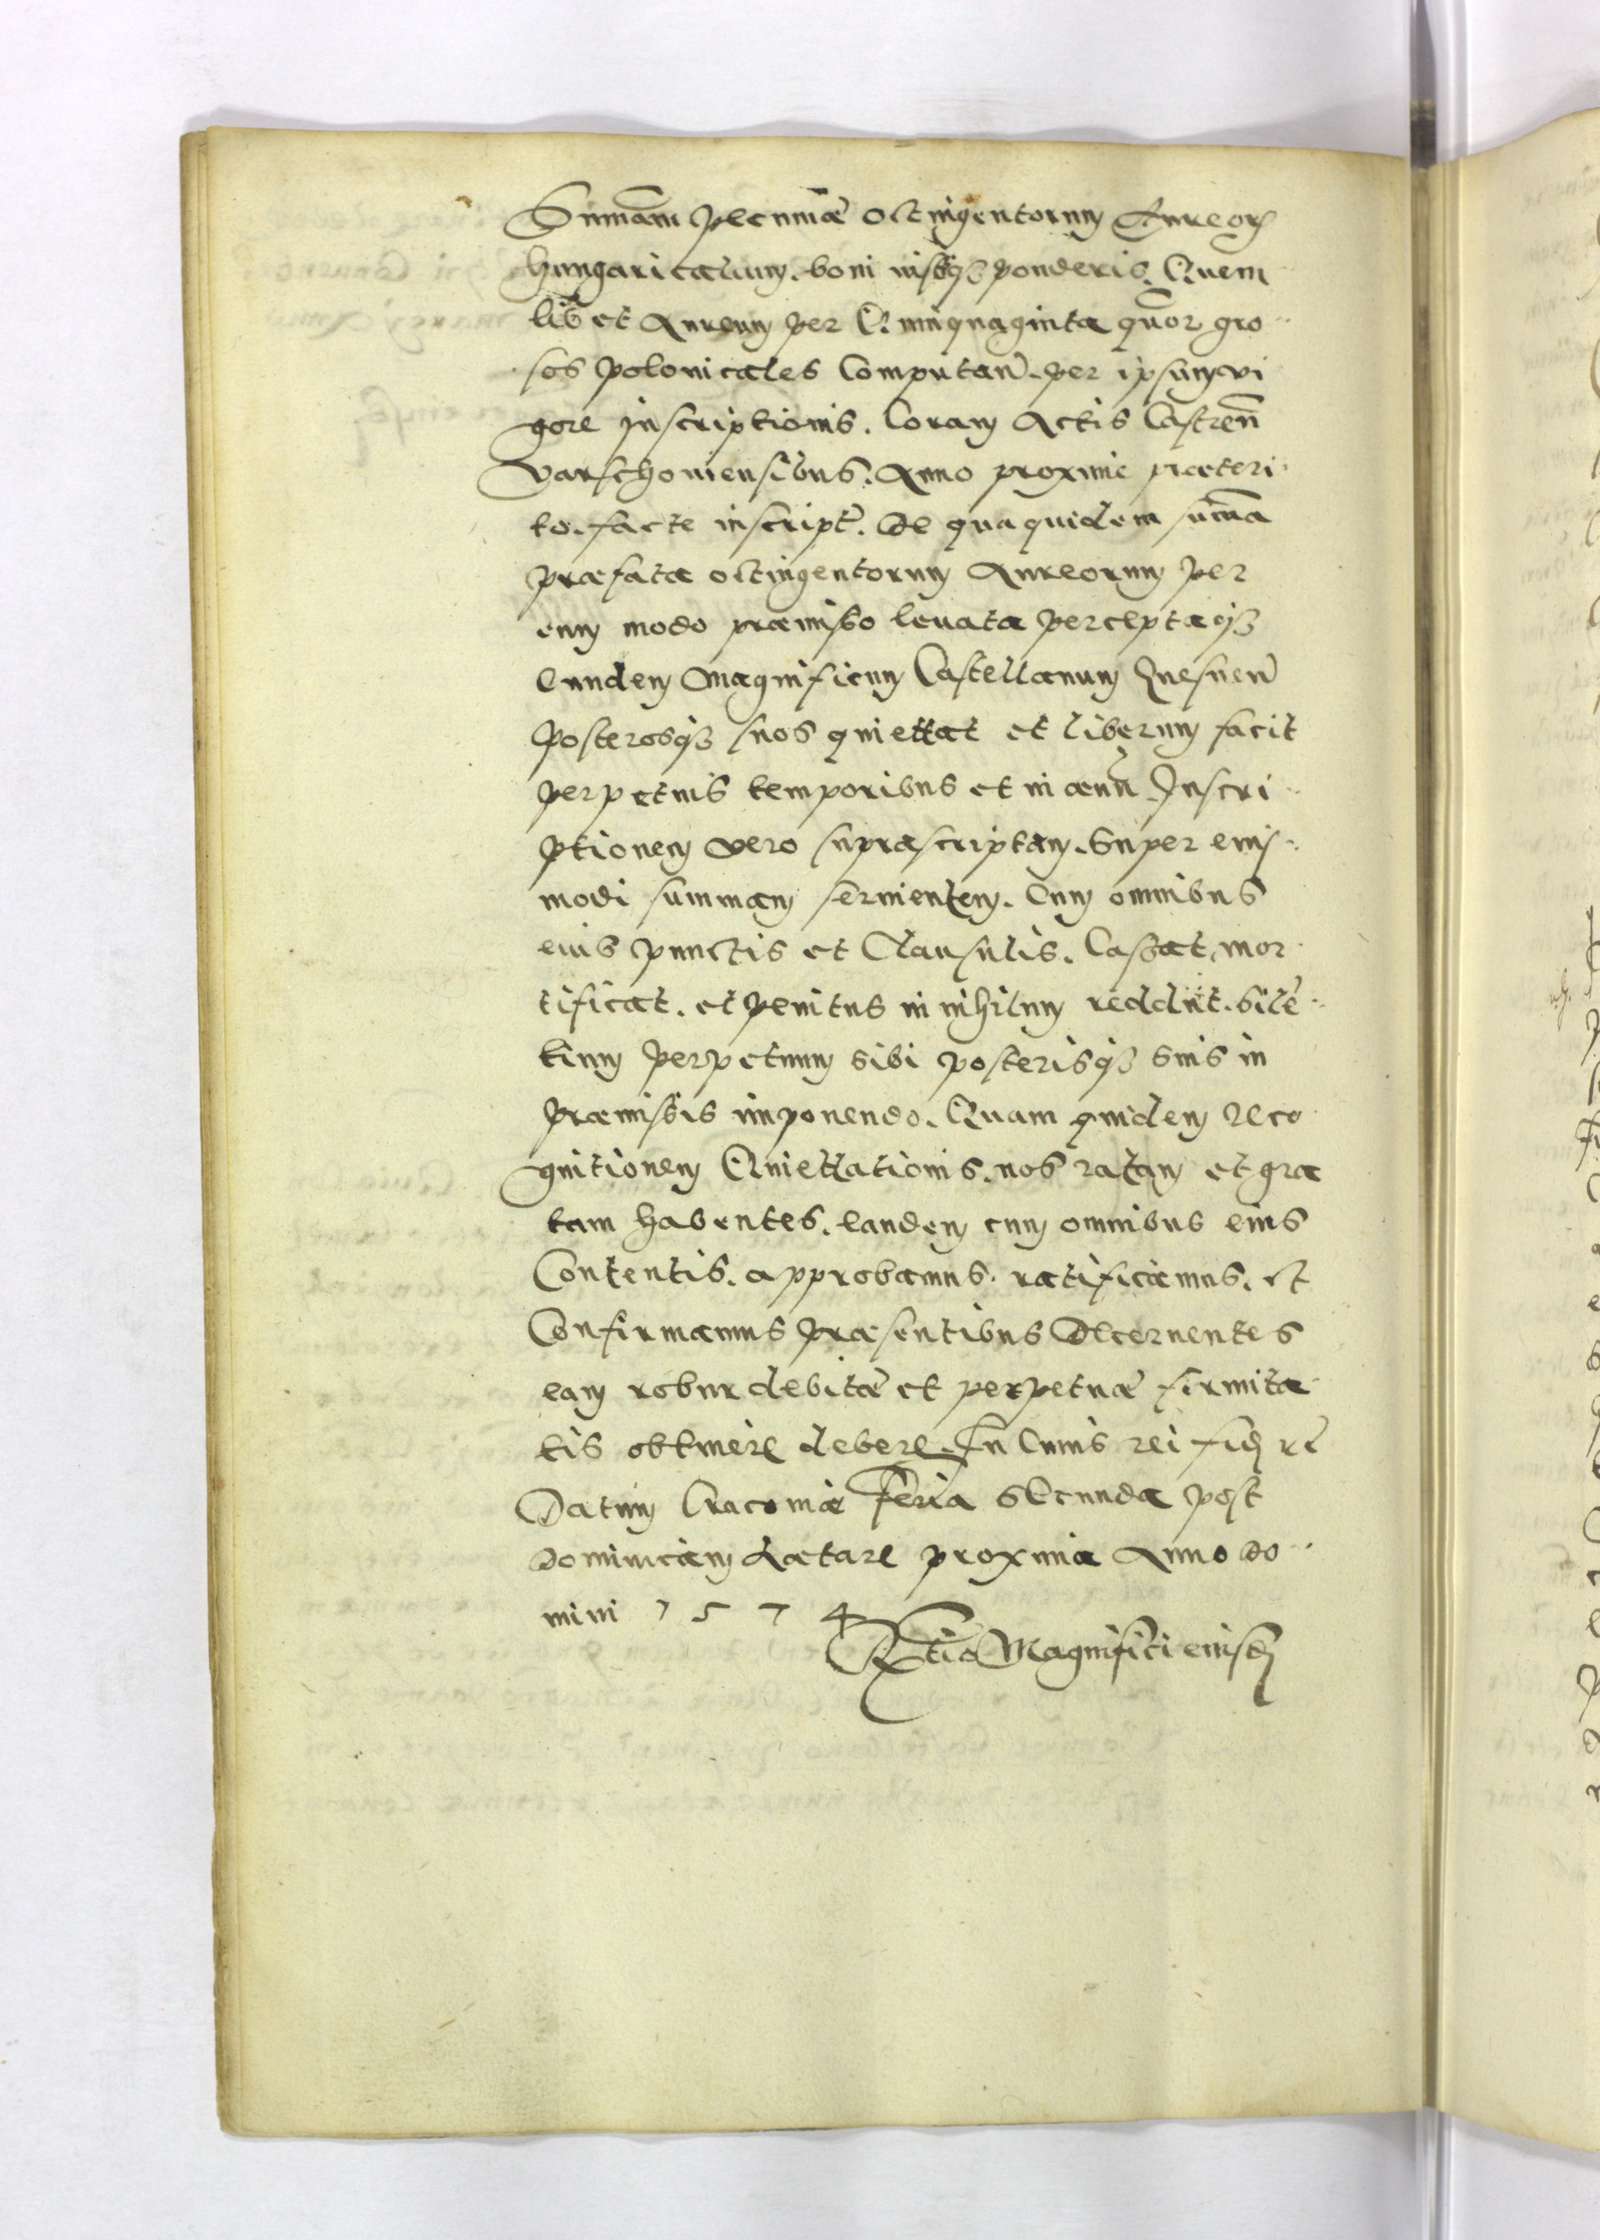 Summam pecuniæ octingentorum Aureorꝝ
hungaricalium. boni iustiqꝫ ponderis. Quem
libet Aureum per Quinquaginta quor gro
sos polonicales Computan. per ipsum vi
gore Inscriptionis. Coram Actis Castren
Varschoviensibus. Anno proxime præteri
to. facte inscript. De qua quidem summa
præfata octingentorum Aureorum per
eum modo præmisso levata perceptaqꝫ
Eundem Magnificum Castellanum Gnesnen
posterosqꝫ suos quiettat et liberum facit
perpetuis temporibus et in ævum Inscri
ptionem vero suprascriptam. Super eius
modi summam servientem. Cum omnibus
eius punctis et Clausulis. Cassat, mor
tificat. et penitus in nihilum reddit. Silen
tium perpetuum sibi posterisqꝫ suis in
Præmissis imponendo. Quam quidem reco
gnitionem Quiettationis. nos ratam et gra
tam habentes. eandem cum omnibus eius
Contentis. approbamus. ratificamus. et
Confirmamus præsentibus Decernentes
eam robur debitæ et perpetuæ firmita
tis obtinere debere. In Cuius rei fid re
Datum Cracoviæ Feria secunda post
dominicam Lætare proxima Anno do
mini 1574
Rtio Magnifici eiusd